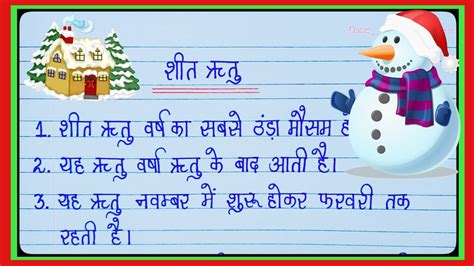 शीत ऋतु
1. शीत ऋतु वर्ष का सबसे ठंड़ा मौसम है
2. यह ऋतु वर्षा ऋतु के बाद आती है।
3. यह ऋतु नवम्बर में शुरू होकर फरवरी तक
रहती है।